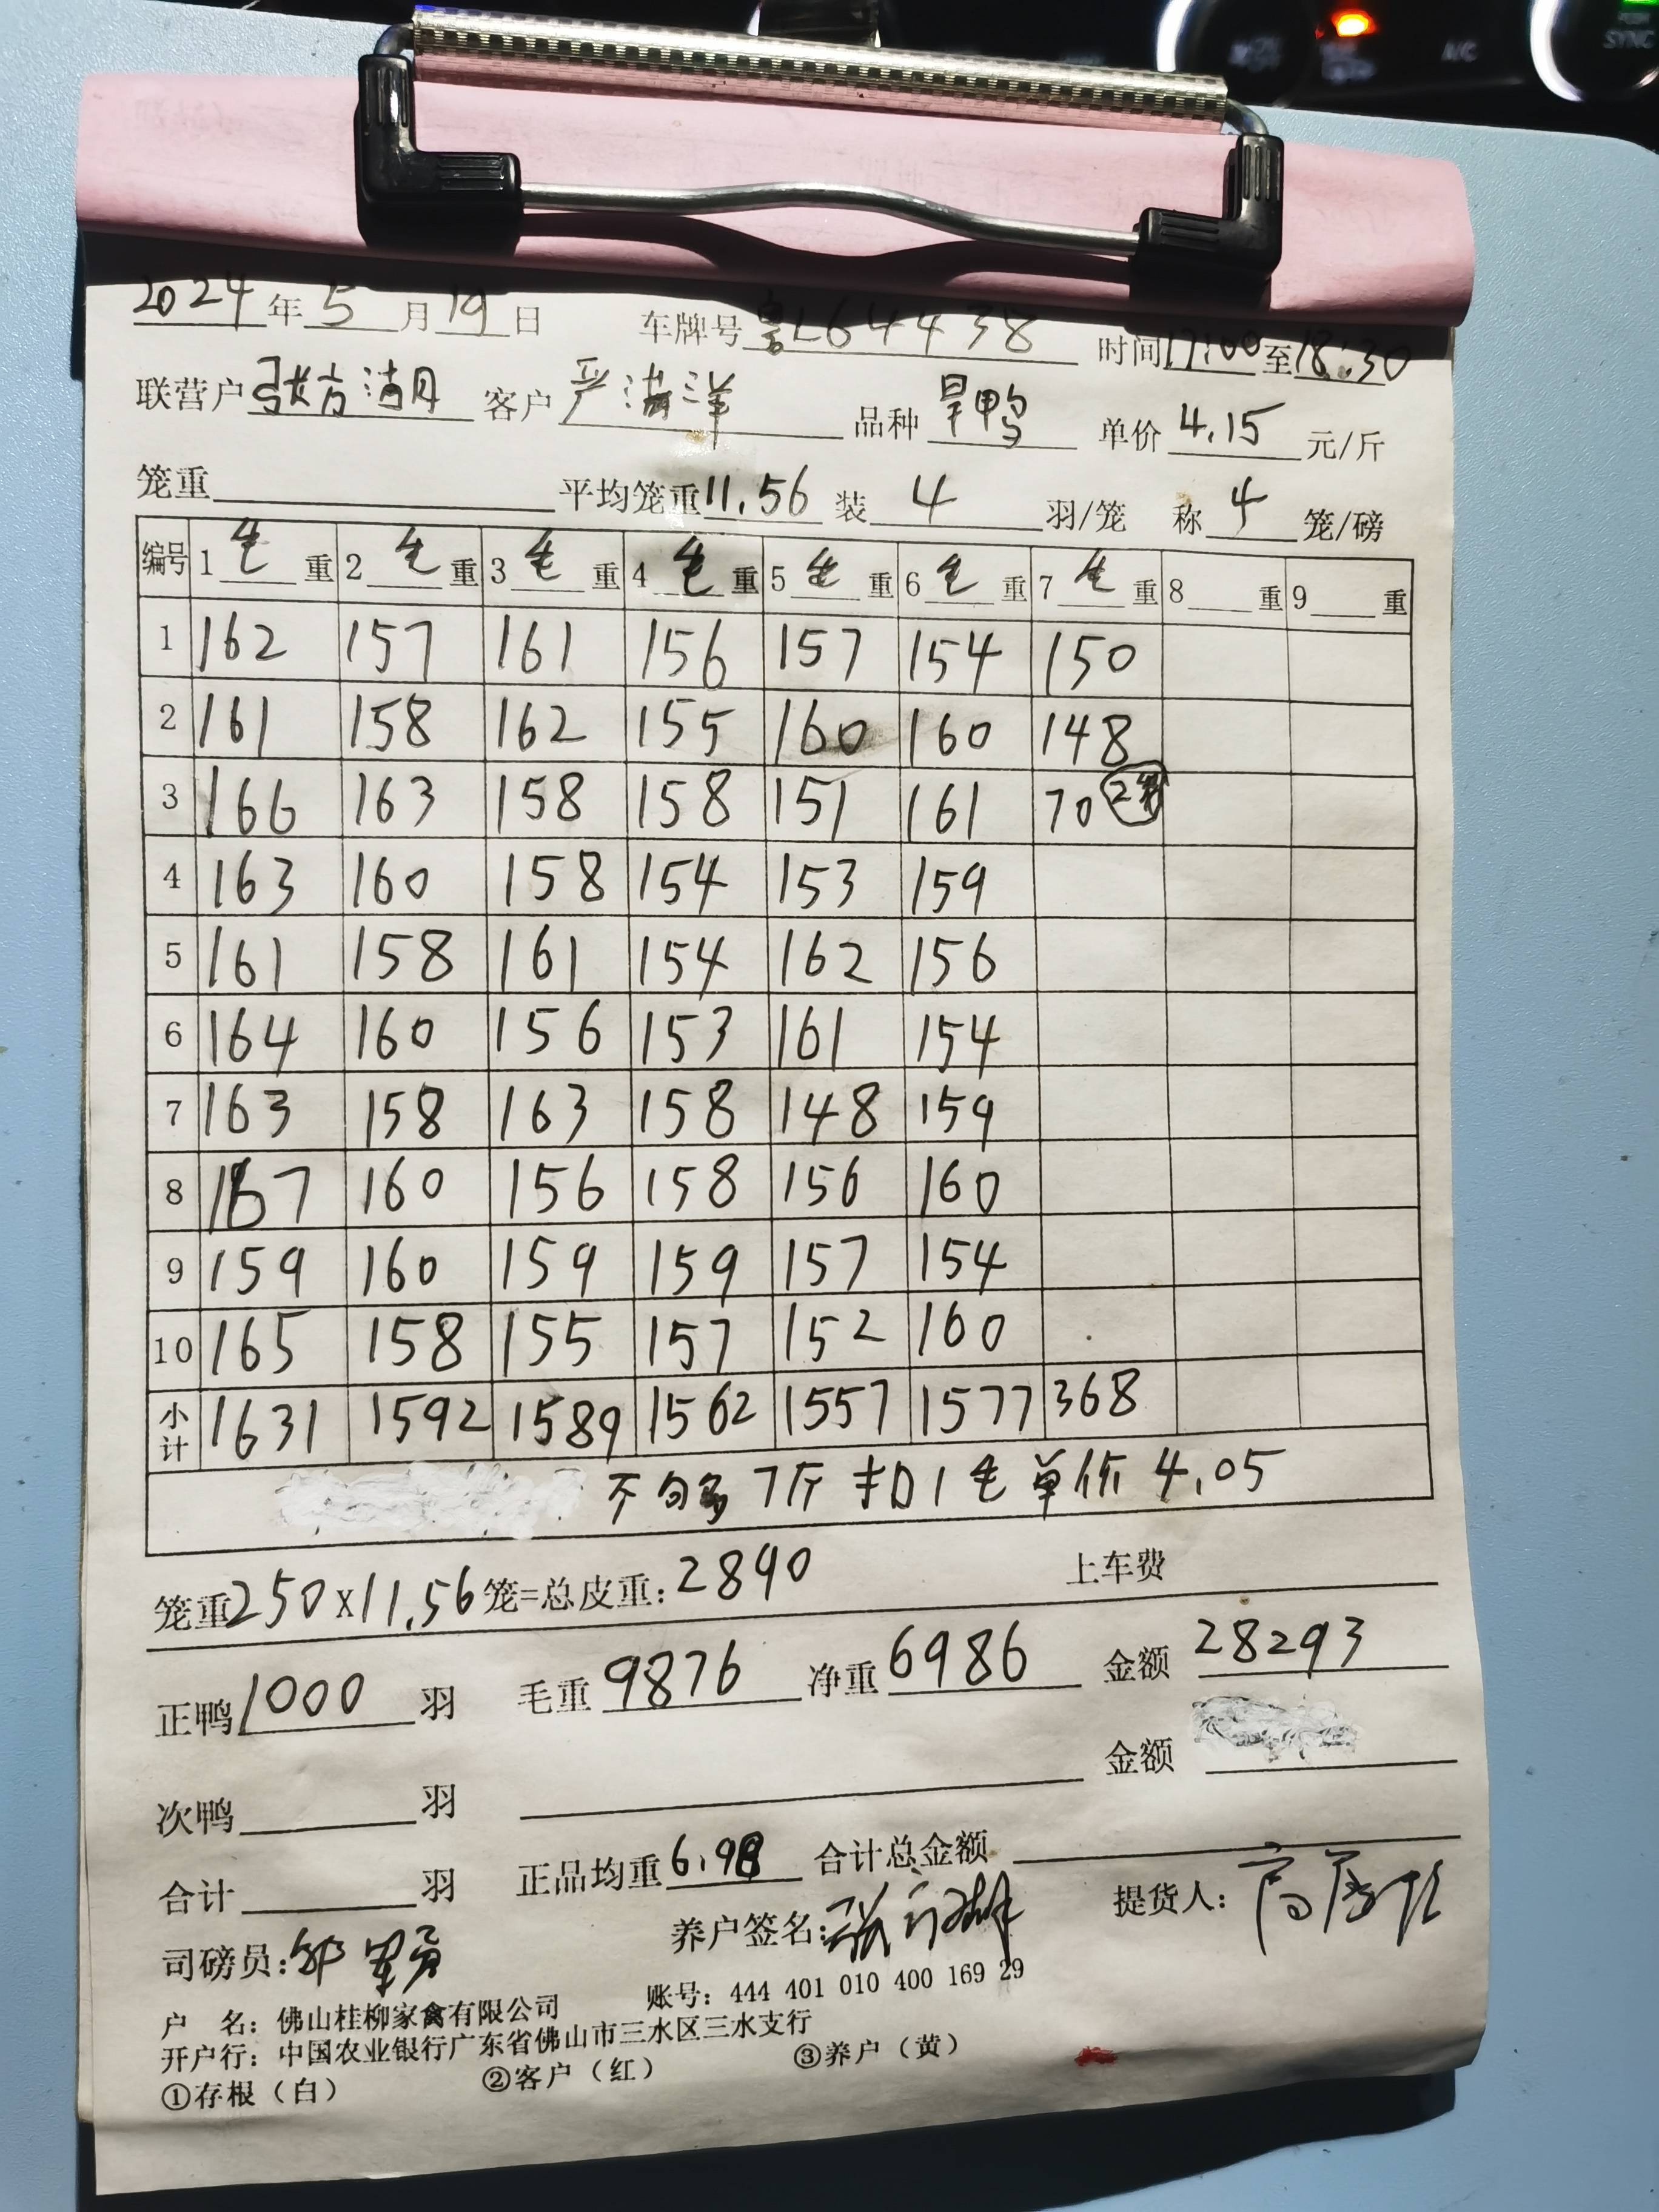 2024年5月19日 车牌号粤L64438 时间17:00至18:30
联营户张方清月 客户严满洋 品种旱鸭 单价4.15元/斤
笼重 平均笼重11.56 装4羽/笼 称4笼/磅
编号 1毛重 2毛重 3毛重 4毛重 5毛重 6毛重 7毛重 8重 9重
1 162 157 161 156 157 154 150
2 161 158 162 155 160 160 148
3 166 163 158 158 151 161 70 2笼
4 163 160 158 154 153 159
5 161 158 161 154 162 156
6 164 160 156 153 161 154
7 163 158 163 158 148 159
8 167 160 156 158 156 160
9 159 160 159 159 157 154
10 165 158 155 157 152 160
小计 1631 1592 1589 1562 1557 1577 368
不够 7斤扣1毛单价4.05
笼重250x11.56笼=总皮重:2890 上车费
正鸭1000羽 毛重9876 净重6986 金额28293
次鸭 羽 金额
合计 羽 正品均重6.98 合计总金额
司磅员: 养户签名: 提货人:
户 名: 佛山桂柳家禽有限公司 账号: 444 401 010 400 169 29
开户行: 中国农业银行广东省佛山市三水区三水支行
①存根(白) ②客户(红) ③养户(黄)